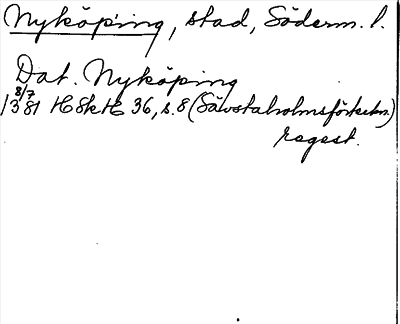 Nyköping, stad, Söderm. l.
Dat. Nyköping
8/7
1381 HSkH 36, s. 8 (Sävstaholmsförteckn.)
regest.